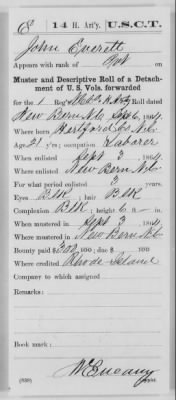 E 14 H. Art'y. U.S.C.T.
John Everett
Appears with rank of Pvt on
Muster and Descriptive Roll of a Detach-
ment of U. S. Vols. forwarded
for the 1 Reg't N.C.C. H. Art'y Roll dated
New Bern N.C. Sept 6, 1864.
Where born Hertford Co N.C.
Age 21 y'rs; occupation Laborer
When enlisted Sept 3, 1864.
Where enlisted New Bern N.C.
For what period enlisted 3 years.
Eyes Blk; hair Blk
Complexion Blk; height 6 ft. — in.
When mustered in Sept 3, 1864.
Where mustered in New Bern N.C.
Bounty paid $300 100; due $ 100
Where credited Rhode Island
Company to which assigned
Remarks:
Book mark:
(339) Copyist.